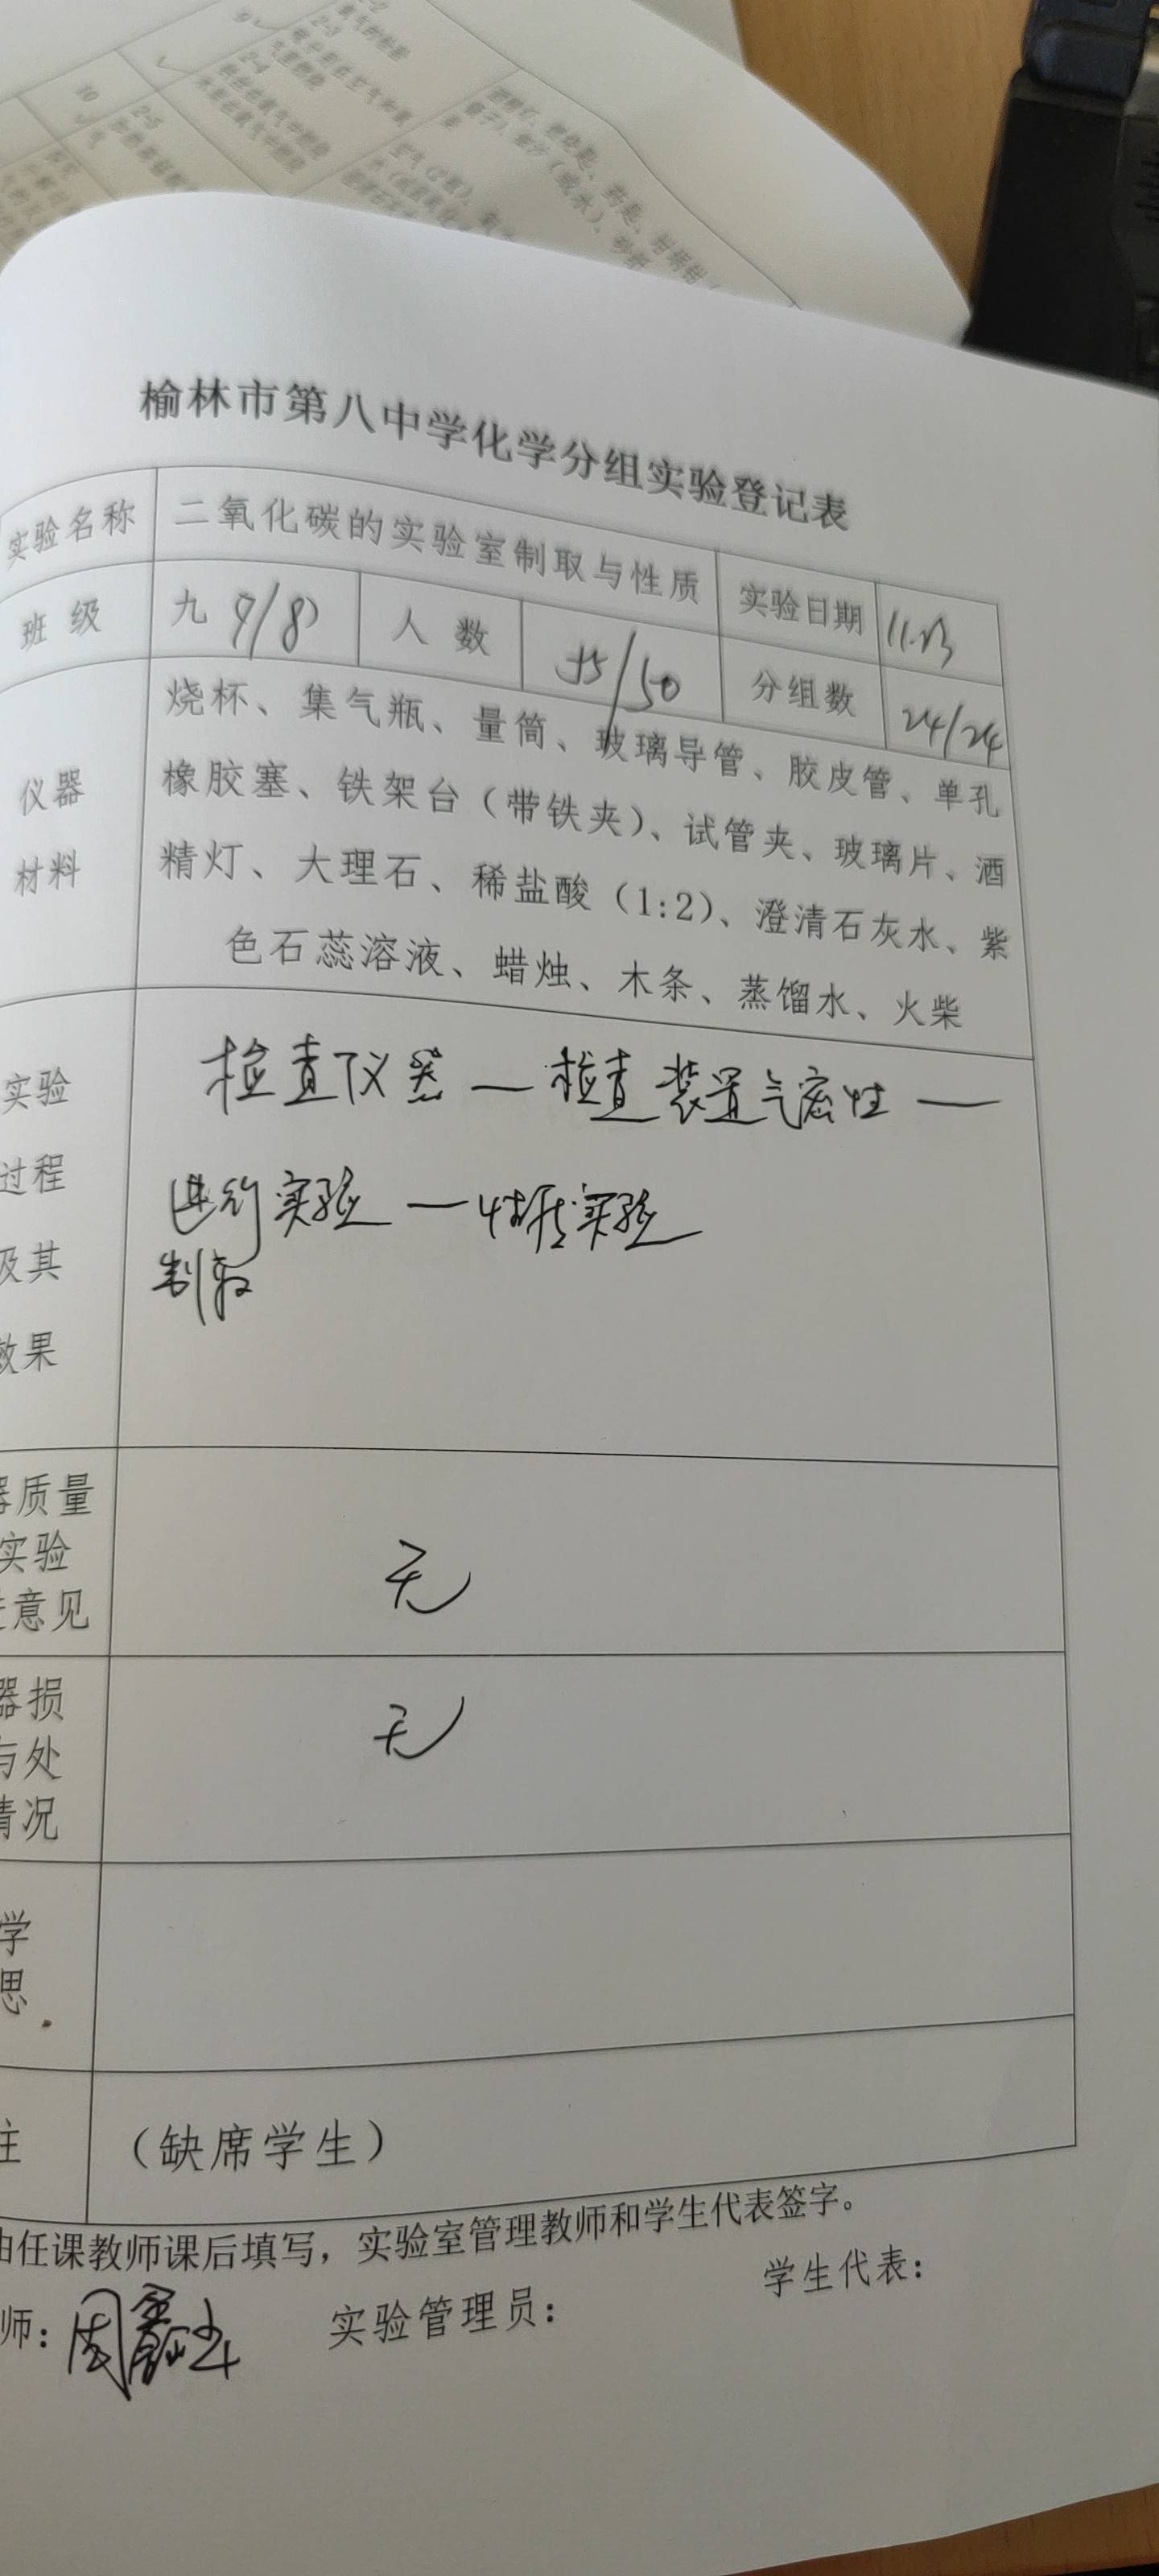 榆林市第八中学化学分组实验登记表
实验名称 二氧化碳的实验室制取与性质 实验日期 11.13
班级 九 7/8 人数 /50 分组数 24/24
仪器
材料
烧杯、集气瓶、量筒、玻璃导管、胶皮管、单孔
橡胶塞、铁架台（带铁夹）、试管夹、玻璃片、酒
精灯、大理石、稀盐酸（1:2）、澄清石灰水、紫
色石蕊溶液、蜡烛、木条、蒸馏水、火柴
实验
过程
及其
效果
检查仪器—检查装置气密性—
进行实验—性质实验
制取
器质量
实验
意见
无
器损
与处
情况
无
学
思
注 （缺席学生）
由任课教师课后填写，实验室管理教师和学生代表签字。
师： 周 实验管理员： 学生代表：